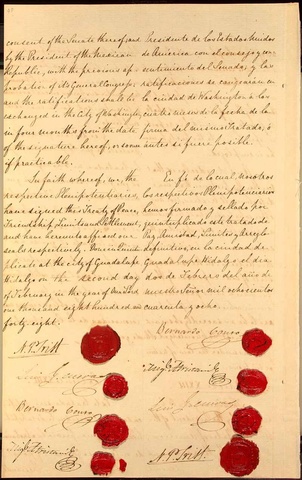 consent of the Senate thereof; and
by the President of the Mexican
Republic, with the previous ap-
probation of its General Congress;
and the ratifications shall be
exchanged in the City of Washington,
in four months from the date
of the signature hereof, or sooner
if practicable.
In faith whereof, we, the
respective Plenipotentiaries,
have signed this Treaty of Peace,
Friendship, Limits and Settlement,
and have hereunto affixed our
seals respectively. Done in Quintu-
plicate at the City of Guadalupe
Hidalgo on the second day
of February in the year of Our Lord
one thousand eight hundred and
forty eight.
N. P. Trist
Luis G. Cuevas
Bernardo Couto
Migl. Atristain
Presidente de los Estados Unidos
de America, con el consejo y con-
sentimiento del Senado, y las
ratificaciones se cangearán en
la ciudad de Washington a los
cuatro meses de la fecha de la
firma del mismo Tratado, ó
antes si fuere posible.
En fé de lo cual, nosotros
los respectivos Plenipotenciarios
hemos firmado y sellado por
quintuplicado este tratado de
Paz, Amistad, Limites y Arreglo
definitivo, en la ciudad de
Guadalupe Hidalgo el dia
dos de Febrero del año de
nuestro Señor mil ochocientos
cuarenta y ocho.
Bernardo Couto
Migl. Atristain
Luis G. Cuevas
N. P. Trist